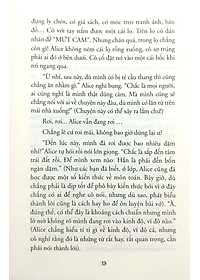 đựng ly chén, có giá sách, có móc treo tranh ảnh, bản
đồ... Cô với tay nắm được một cái lọ. Trên lọ có dán
nhãn "MỨT CAM". Nhưng chán quá, trong lọ chẳng
có gì! Alice không ném cái lọ rỗng xuống, cô sợ trúng
phải ai đó ở bên dưới. Cô cố đặt nó vào cái hốc khi
rơi ngang qua.
"Ừ nhỉ, sau này, dù mình có bị té cầu thang thì cũng
chẳng ăn nhằm gì." Alice nghĩ bụng. "Chắc là mọi người,
ai cũng nghĩ là mình thật dũng cảm. Mà mình cũng
chẳng nói với ai về chuyện này đâu, dù mình có lăn từ trên
mái nhà xuống!" (Chuyện này có thể xảy ra lắm chứ!)
Rơi, rơi... Alice vẫn đang rơi ...
Chẳng lẽ cứ rơi mãi, không bao giờ dừng lại ư!
"Đến lúc này, mình đã rơi được bao nhiêu dặm
nhỉ?" Alice tự hỏi rồi nói lớn giọng. "Chắc là sắp đến tâm
trái đất rồi. Để mình xem nào: Hẳn là phải đến bốn
ngàn dặm." (Như các bạn đã biết, ở lớp, Alice cũng đã
được học một số kiến thức về môn toán. Bây giờ, dù
chẳng phải là dịp tốt để phô bày kiến thức bởi vì ở đây
chẳng có ai để nghe cô nói, nhưng dù sao, lặp lại bài
học cũng là cách hay ho để ôn luyện bài vở). "À,
đúng thế, có thể đây là khoảng cách chuẩn nhưng mình
lơ mơ không rõ mình đang rơi vào kinh độ, vĩ độ nào."
(Alice chẳng hiểu tí tị gì về kinh độ, vĩ độ cả, nhưng
cô nghĩ rằng đó là những từ rất hay, rất quan trọng, cần
phải nói thành lời).
13